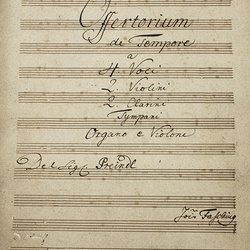 Offertorium
de Tempore
a
4 Voci
2. Violini
2. Clarini
Tympani
Organo e Violone
Del Sig. Preindl
Joh: Fasching